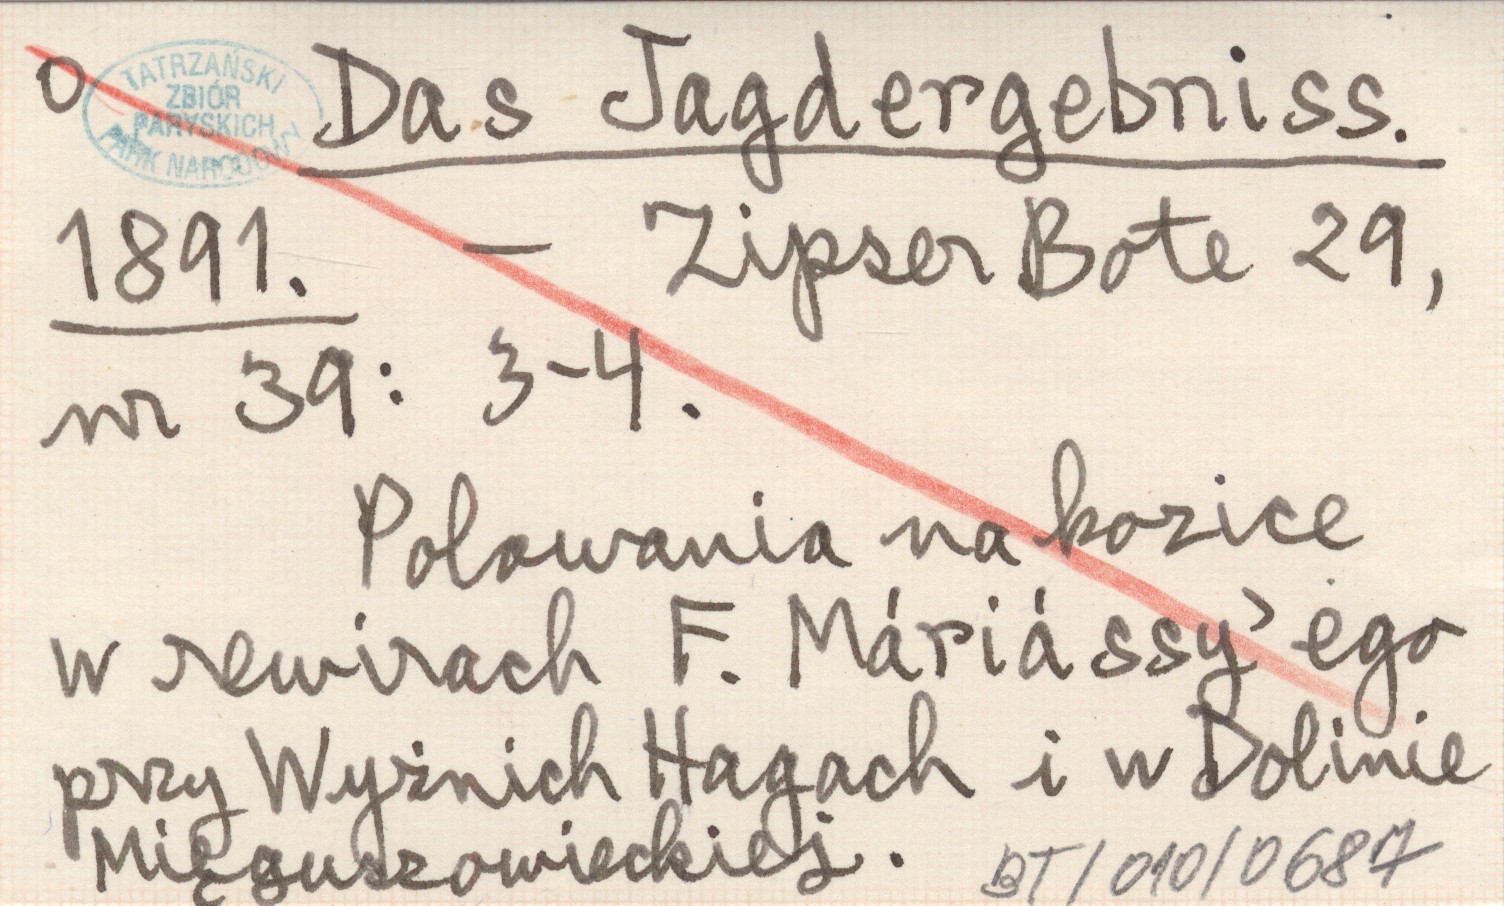 o Das Jagdergebniss.
TATRZAŃSKI
ZBIÓR
PARYSKICH
PARK NARODOWY
1891. – Zipser Bote 29,
nr 39: 3-4.
Polowania na kozice
w rewirach F. Máriássy'ego
przy Wyżnich Hagach i w Dolinie
Mięguszowieckiej.
BT/010/0687